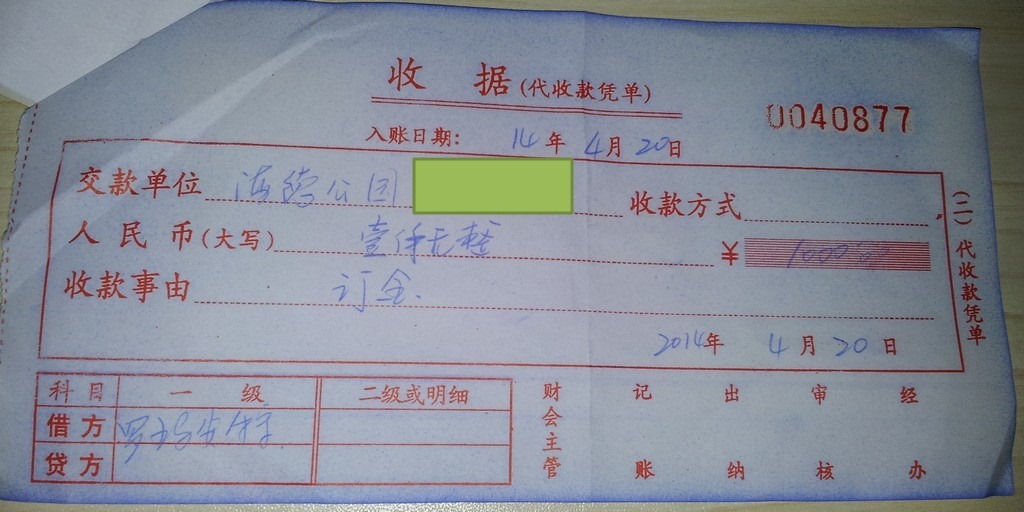 收 据(代收款凭单)
0040877
入账日期: 14年 4月 20日
交款单位 公园 收款方式
人民币(大写) 壹仟元整 ¥ 1000
收款事由 订金.
2014年 4月 20日
(二)代收款凭单
科目 一级 二级或明细
借方
贷方
财会主管 记账 出纳 审核 经办